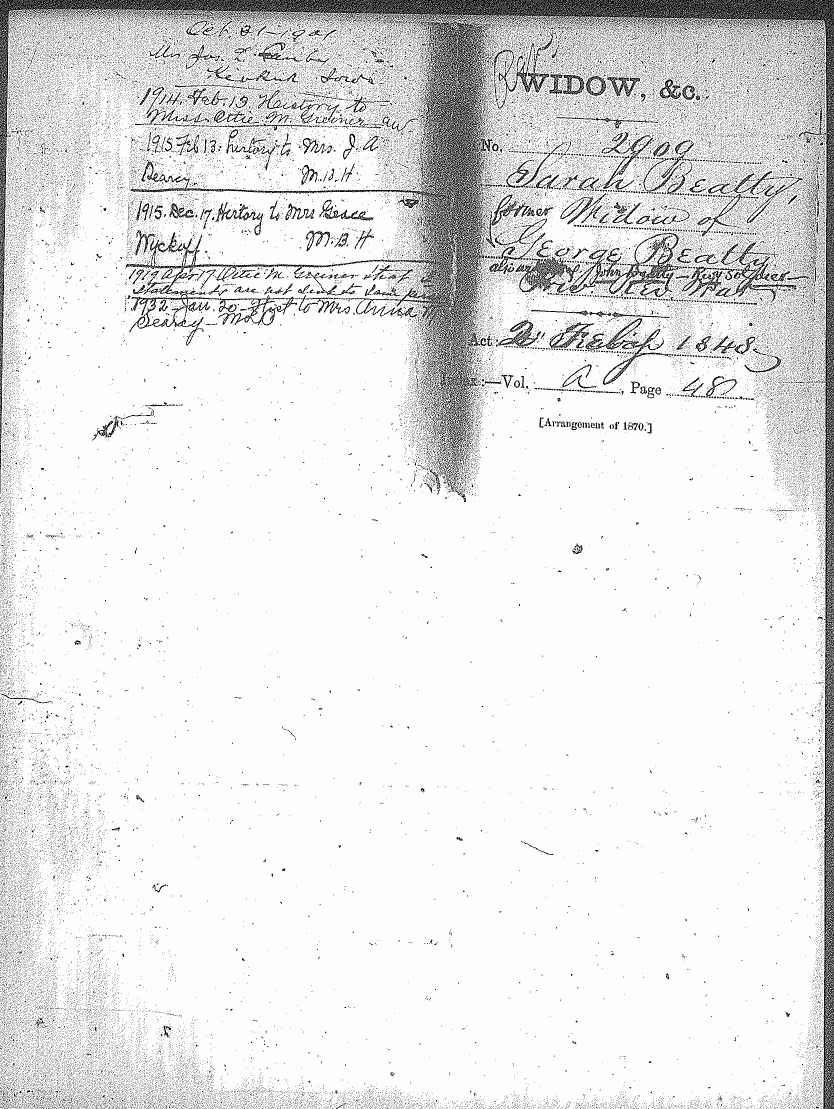 Oct. 31-1901
Mrs Jos. L.
Keokuk Iowa
1914. Feb. 13. History to
Miss Ottie M. Greiner aw
1915 Feb 13: history to Mrs. J. A
Searcy. M.B.H
1915. Dec. 17. History to Mrs Grace
Wyckoff. M.B.H
1919 Apr 17 Ottie M. Greiner that
statements are not due to same
1932 - Jan. 20 - Hist to Mrs. Anna M
Searcy - Mo.
Rev
WIDOW, &c.
No. 2909
Sarah Beatty,
former Widow of
George Beatty
also John Beatty - Rev Soldier
Rev War
Act: 2" Feby 1848
Index:—Vol. A, Page 48
[Arrangement of 1870.]